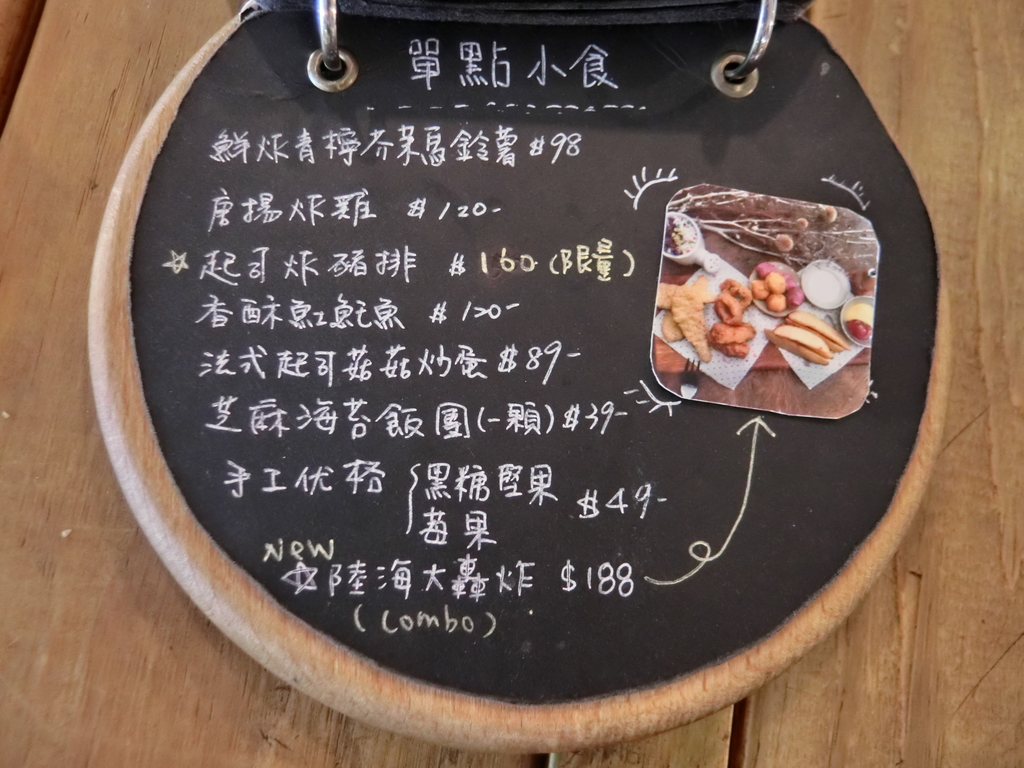 單點小食
鮮炸青檸芥茉馬鈴薯 $98
唐揚炸雞 $120-
☆起司炸豬排 $160 (限量)
香酥魟魠魚 $120-
法式起司菇菇炒蛋 $89-
芝麻海苔飯團(一顆) $39-
手工优格 { 黑糖堅果 $49-
莓果
New
☆陸海大轟炸 $188
(combo)